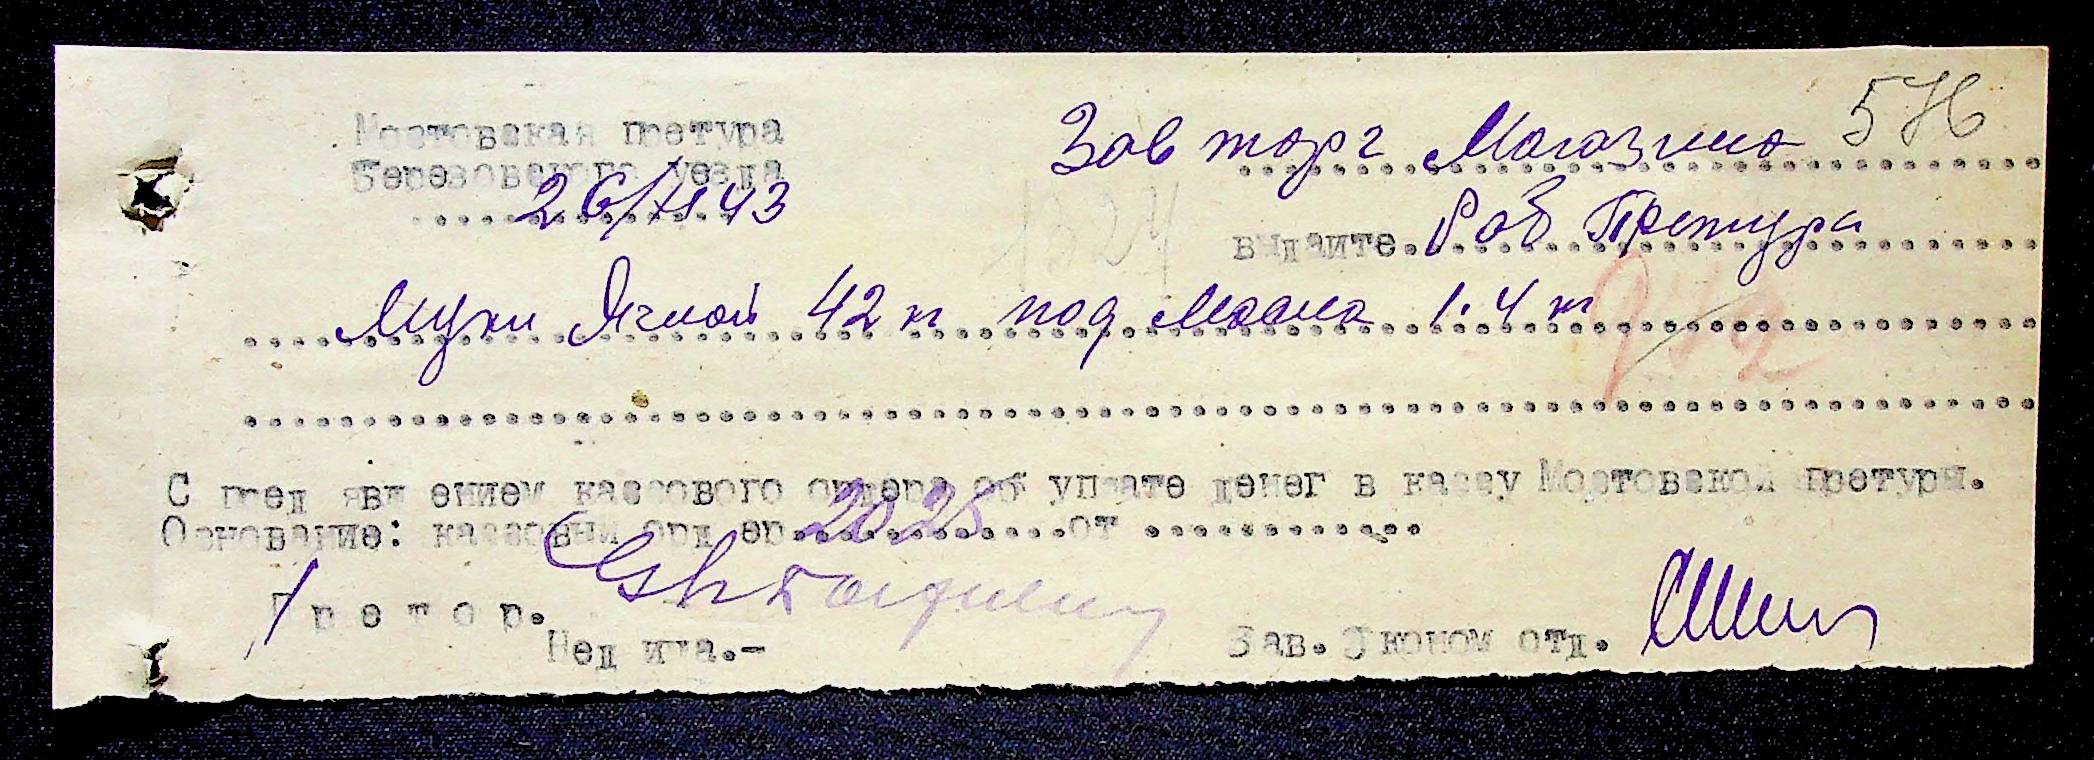 Мостовская претура
Березовского уезда
26/XI 43
576
Зав торг Магазина
1324
выдайте. Раб Претура
Муки Ячной 42 кг под 1.4 кг
С пред явл ением кассового ордера об уплате денег в кассу Мостовской претуры.
Основание: кассовый орд ер 2025 от
Претор.
Нед ица.-
Зав. Эконом отд.